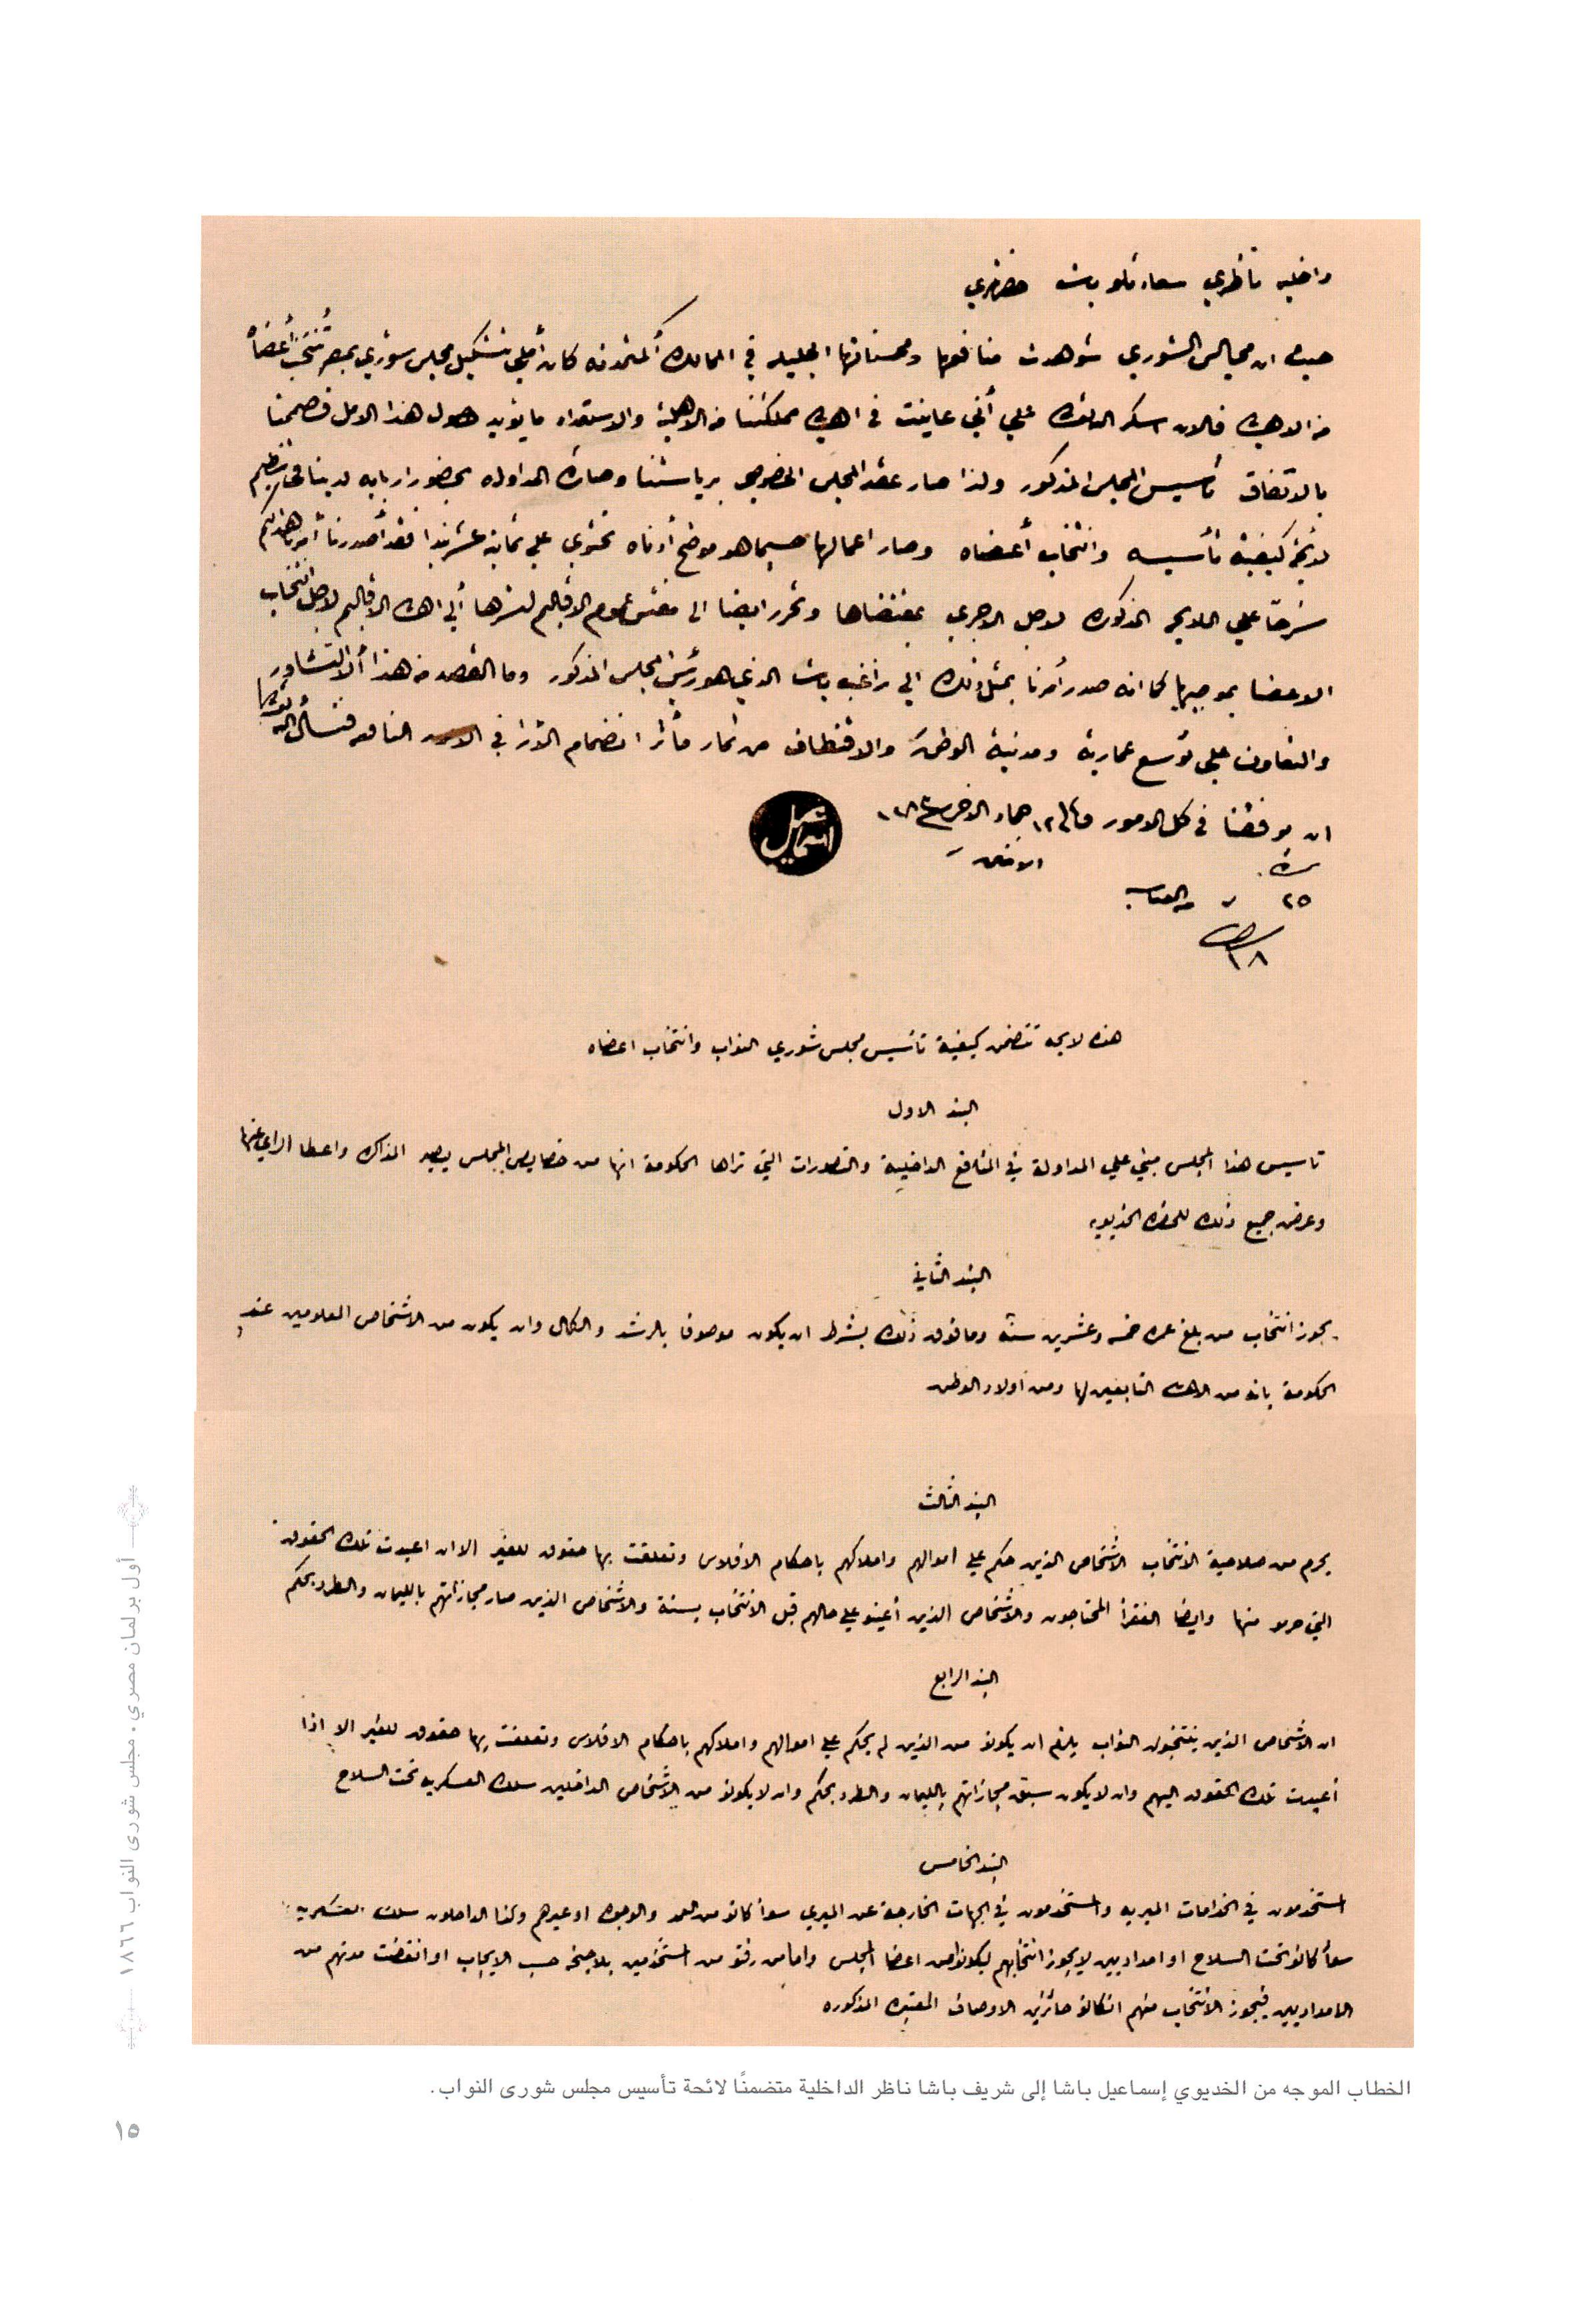 داخليه ناظري سعادتلو باشا حضرتلري
حيث ان مجالس الشوري شوهدت منافعها ومحسناتها الجليله في الممالك المتمدنه كان أملي تشكيل مجلس شوري بمصر تُنتخب أعضاه
من الاهالي فالان اشكر الله علي أني عاينت في اهالي مملكتنا من الاهلية والاستعداد ما يؤيد حصول هذا الامل فصممنا
بالاتفاق تأسيس المجلس المذكور ولذا صار عقد المجلس الخصوصي برياستنا وصارة المداوله بحضور اربابه لدينا في تنظيم
لايحة كيفية تأسيسه وانتخاب أعضاه وصار اعمالها حسبما هو موضح أدناه تحتوي علي ثمانية عشر بندا فقد أصدرنا أمرنا هذا اليكم
شرحًا علي اللايحه المذكوره لاجل الاجري بمقتضاها وتحرر ايضا الى مفتش عموم الاقاليم لنشرها ألي اهالي الاقاليم لاجل انتخاب
الاعضا بموجبها كما انه صدر أمرنا بمثل ذلك الي راغب باشا الذي هو رئيس المجلس المذكور وما القصد من هذا ألا التشاور
والتعاون علي توسع عمارية ومدنية الوطن والاقتطاف من ثمار مأثر انضمام الآرا في الامور النافعه فنسأل الله
ان يوفقنا في كل الامور في ١٢ جماد الاخر سنة ١٢٨٣
اسماعيل
٢٥
١٨
هذه لايحه تتضمن كيفية تأسيس مجلس شوري النواب وانتخاب اعضاه
البند الاول
تاسيس هذا المجلس مبني علي المداولة في المنافع الداخلية والتصورات التي تراها الحكومة انها من خصايص المجلس يصير المذاكره واعطا الراي عنها
وعرض جميع ذلك للحضره الخديويه
البند الثاني
يجوز انتخاب من بلغ عمره خمسه وعشرين سنة وما فوق ذلك بشرط ان يكون موصوفا بالرشد والكمال وان يكون من الاشخاص المعلومين عند
الحكومة بانه من الاهالي التابعين لها ومن اولاد الوطن
البند الثالث
يحرم من صلاحية الانتخاب الاشخاص الذين حكم علي اموالهم واملاكهم باحكام الافلاس وتعلقت بها حقوق للغير الا ان اعيدت تلك الحقوق
التي حرمو منها وايضا الفقرأ المحتاجون والاشخاص الذين أعينو علي حالهم قبل الانتخاب بسنة والاشخاص الذين صار مجازاتهم بالليمان والطرد بحكم
البند الرابع
ان الاشخاص الذين ينتخبون النواب يلزم ان يكونو من الذين لم يحكم علي اموالهم واملاكهم باحكام الافلاس وتعلقت بها حقوق للغير الا اذا
أعيدت تلك الحقوق اليهم وان لا يكون سبق مجازاتهم بالليمان والطرد بحكم وان لا يكونو من الاشخاص الداخلين سلك العسكريه تحت السلاح
البند الخامس
المستخدمون في الخدامات الميريه والمستخدمون في الجهات الخارجة عن الميري سوأ كانو من العمد والوجوه او غيرهم وكذا الداخلون سلك العسكريه
سوأ كانو تحت السلاح او امداديين لا يجوز انتخابهم ليكونو من اعضا المجلس واما من رفتو من المستخدمين بلا جنحه حسب الايجاب او انقضت مدتهم من
الامداديين فيجوز الانتخاب منهم ان كانو حائزين الاوصاف المعتبره المذكوره
الخطاب الموجه من الخديوي إسماعيل باشا إلى شريف باشا ناظر الداخلية متضمنًا لائحة تأسيس مجلس شورى النواب.
أول برلمان مصري • مجلس شورى النواب ١٨٦٦
١٥